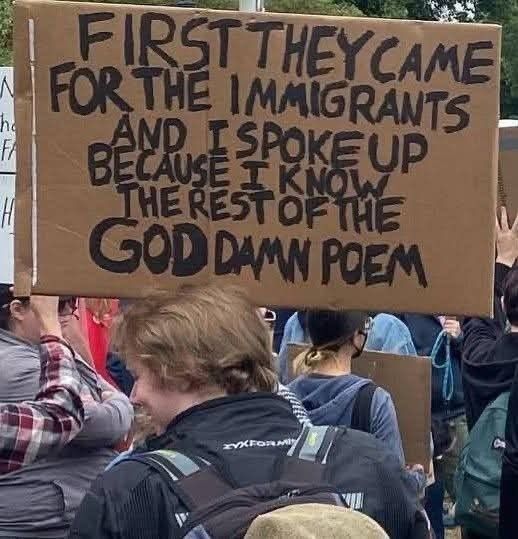 FIRST THEY CAME
FOR THE IMMIGRANTS
AND I SPOKE UP
BECAUSE I KNOW
THE REST OF THE
GOD DAMN POEM